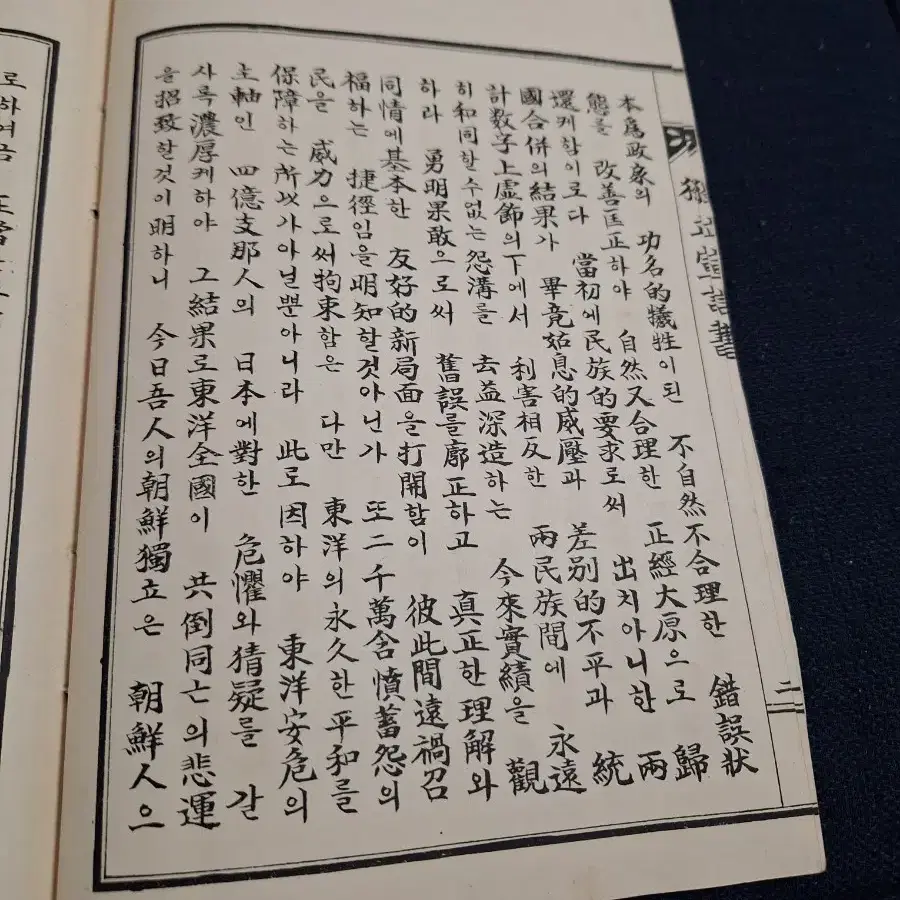 獨立宣言書
二
本爲政家의 功名的犧牲이된 不自然不合理한 錯誤狀
態를 改善匡正하야 自然又合理한 正經大原으로 歸
還케함이로다 當初에民族的要求로써 出치아니한 兩
國合倂의結果가 畢竟姑息的威壓과 差別的不平과 統
計数字上虛飾의下에서 利害相反한 兩民族間에 永遠
히和同할수없는怨溝를 去益深造하는 今來實績을 觀
하라 勇明果敢으로써 舊誤를廓正하고 真正한理解와
同情에基本한 友好的新局面을打開함이 彼此間遠禍召
福하는 捷徑임을明知할것아닌가 또二千萬含憤蓄怨의
民을 威力으로써拘束함은 다만 東洋의永久한平和를
保障하는所以가아닐뿐아니라 此로因하야 東洋安危의
主軸인 四億支那人의 日本에對한 危懼와猜疑를 갈
사록濃厚케하야 그結果로東洋全國이 共倒同亡의悲運
을招致할것이明하니 今日吾人의朝鮮獨立은 朝鮮人으
로하여금